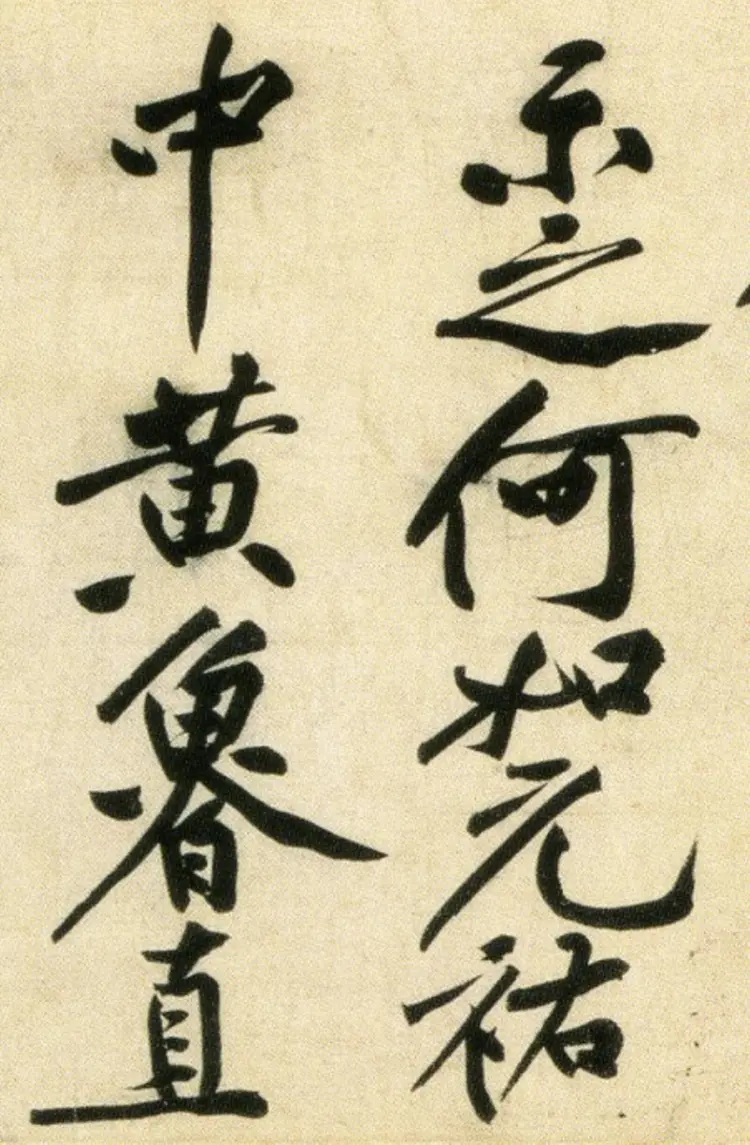 示之何如元祐
中黄魯直